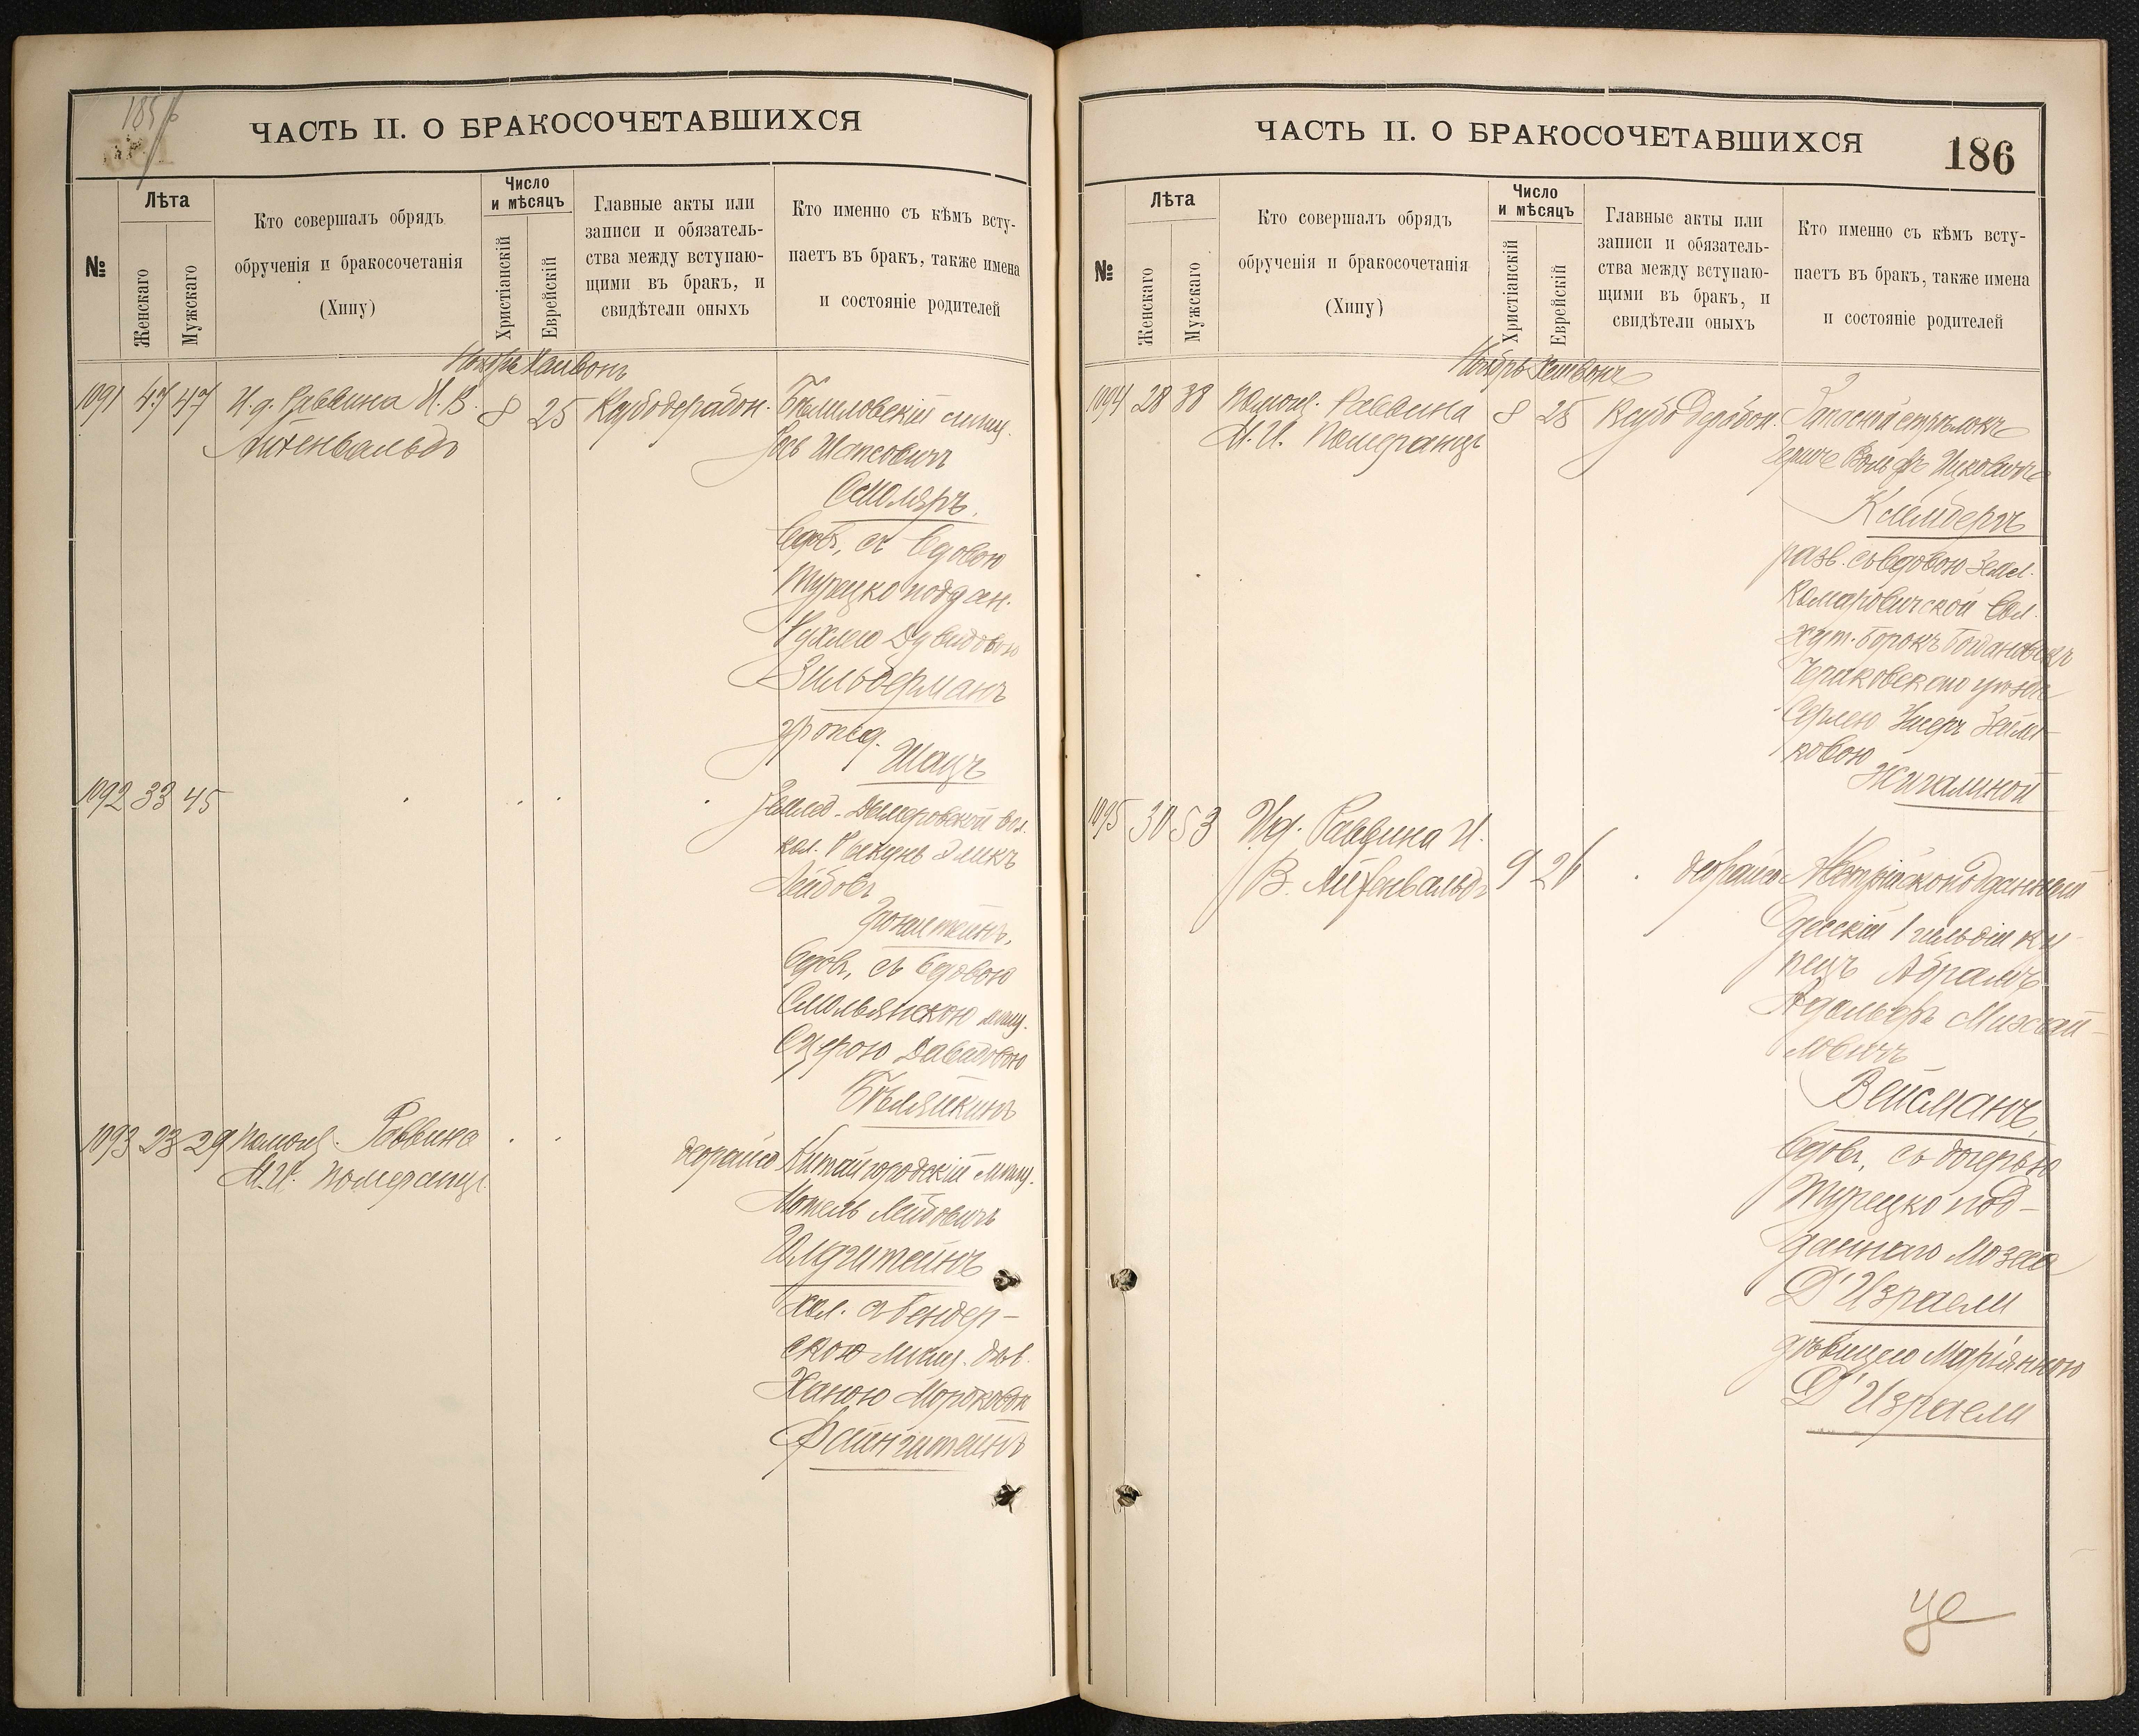 185 б
ЧАСТЬ II. О БРАКОСОЧЕТАВШИХСЯ
№
Лѣта
Женскаго
Мужскаго
Кто совершалъ обрядъ
обрученія и бракосочетанія
(Хипу)
Число
и мѣсяцъ
Христіанскій
Еврейскій
Главные акты или
записи и обязатель-
ства между вступаю-
щими въ бракъ, и
свидѣтели оныхъ
Кто именно съ кѣмъ всту-
паетъ въ бракъ, также имена
и состояніе родителей
Ноябрь Хешвонъ
1091 47 47 И. д. Раввина И. В.
Айхенвальдъ
8 25
Ксубодерабон.
мѣщ.
Шапсовичъ
Смоляръ,
Вдов., съ Вдовою
Турецко поддан.
Рухлею Дувидовою
Зильберманъ
урожд.
Шацъ
1092 33 45
Землед. вол.
кол. Элик
Лейбовъ
Гронштейнъ,
Вдов., съ Вдовою
Смольянскою мѣщ.
Давидовою
Бѣляйкинъ
1093 23 29 Помощ. Раввина
М.И. Померанцъ
дорайсо
Китайгородскій мѣщ.
Мотель Лейбовичъ
хол. съ Бендер-
скою мѣщ. дѣв.
Ханою
Файнштейнъ
ЧАСТЬ II. О БРАКОСОЧЕТАВШИХСЯ
186
№
Лѣта
Женскаго
Мужскаго
Кто совершалъ обрядъ
обрученія и бракосочетанія
(Хипу)
Число
и мѣсяцъ
Христіанскій
Еврейскій
Главные акты или
записи и обязатель-
ства между вступаю-
щими въ бракъ, и
свидѣтели оныхъ
Кто именно съ кѣмъ всту-
паетъ въ бракъ, также имена
и состояніе родителей
Ноябрь Хешвонъ
1094 28 38 Помощ. Раввина
М.И. Померанцъ
8 25
Ксубо Дерабон.
Запасной стрѣлокъ
Герше Вольфъ Ицковичъ
разв. съ вдовою Земл.
вол.
хут. Борокъ
Чериковскаго уѣзда
ковою
Жигалиной
1095 30 53 Ид. Раввина И.
В. Айхенвальдъ
9 26
дорайсо
Австрійскоподданный
Одесскій 1 гильдіи ку-
пецъ Абрамъ
Адольфъ Михай-
ловичъ
Вейсманъ,
Вдов., съ дочерью
Турецко под-
даннаго Мозеса
Д'Израели
дѣвицею Маріянною
Д'Израели